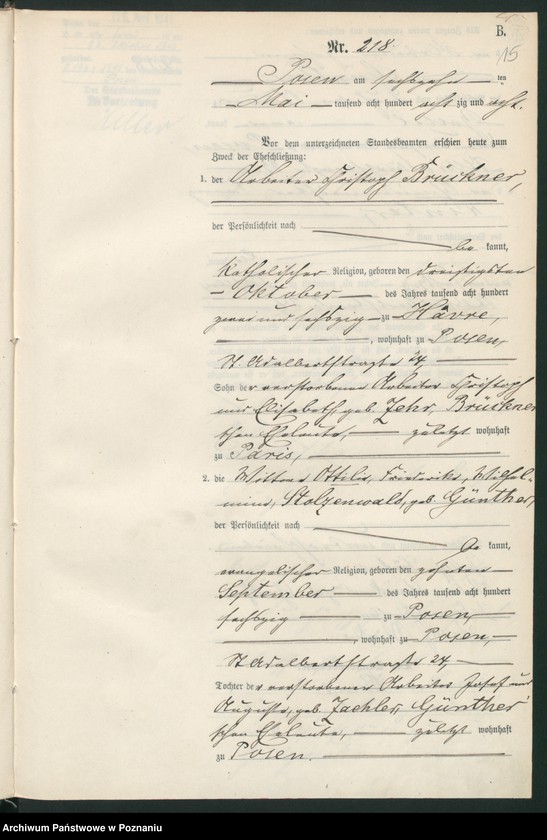 B.
15
Nr. 218.
Posen am sechszehn ten
Mai tausend acht hundert acht zig und acht.
Vor dem unterzeichneten Standesbeamten erschien heute zum
Zweck der Eheschließung:
1. der Arbeiter Christoph Brückner,
der Persönlichkeit nach
be kannt,
katholischer Religion, geboren den dreißigsten
Oktober des Jahres tausend acht hundert
zwei und sechszig zu Hâvre,
, wohnhaft zu Posen,
St. Adalbertstraße 24,
Sohn der verstorbenen Arbeiter Christoph
und Elisabeth, geb. Zehr, Brückner
schen Eheleute, zuletzt wohnhaft
zu Paris,
2. die Wittwe Ottilie, Friederike, Wilhel-
mine, Stolzenwald, geb. Günther,
der Persönlichkeit nach
be kannt,
evangelischer Religion, geboren den zehnten
September des Jahres tausend acht hundert
sechszig zu Posen,
, wohnhaft zu Posen,
St. Adalbertstraße 24,
Tochter der verstorbenen Arbeiter Josef und
Auguste, geb. Zachler, Günther
schen Eheleute, zuletzt wohnhaft
zu Posen.
Archiwum Państwowe w Poznaniu